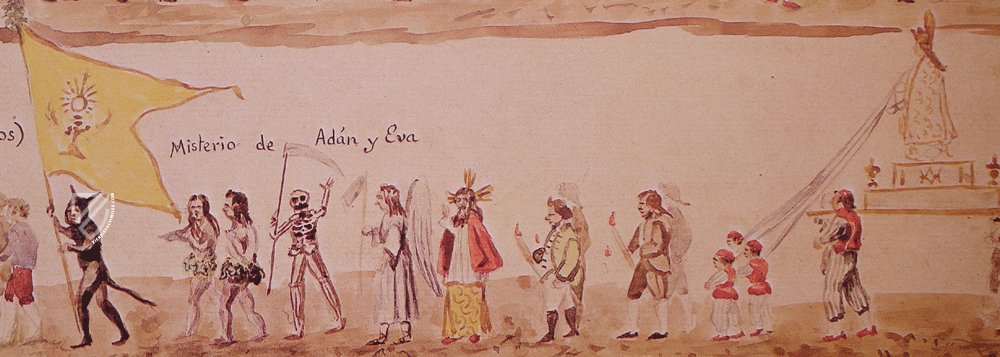 os)
Misterio de Adán y Eva